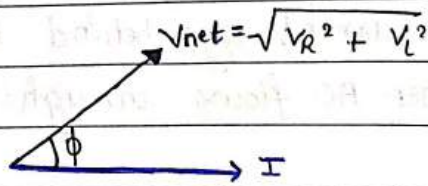 Vnet = √(V_R² + V_L²)
ϕ
I